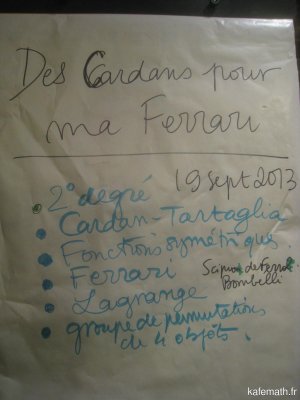 Des Cardans pour
ma Ferrari
19 sept 2013
2° degré
Cardan-Tartaglia
Fonctions symétriques
Ferrari
Scipion del Ferro
Bombelli
Lagrange
groupe de permutations
de 4 objets.
kafemath.fr